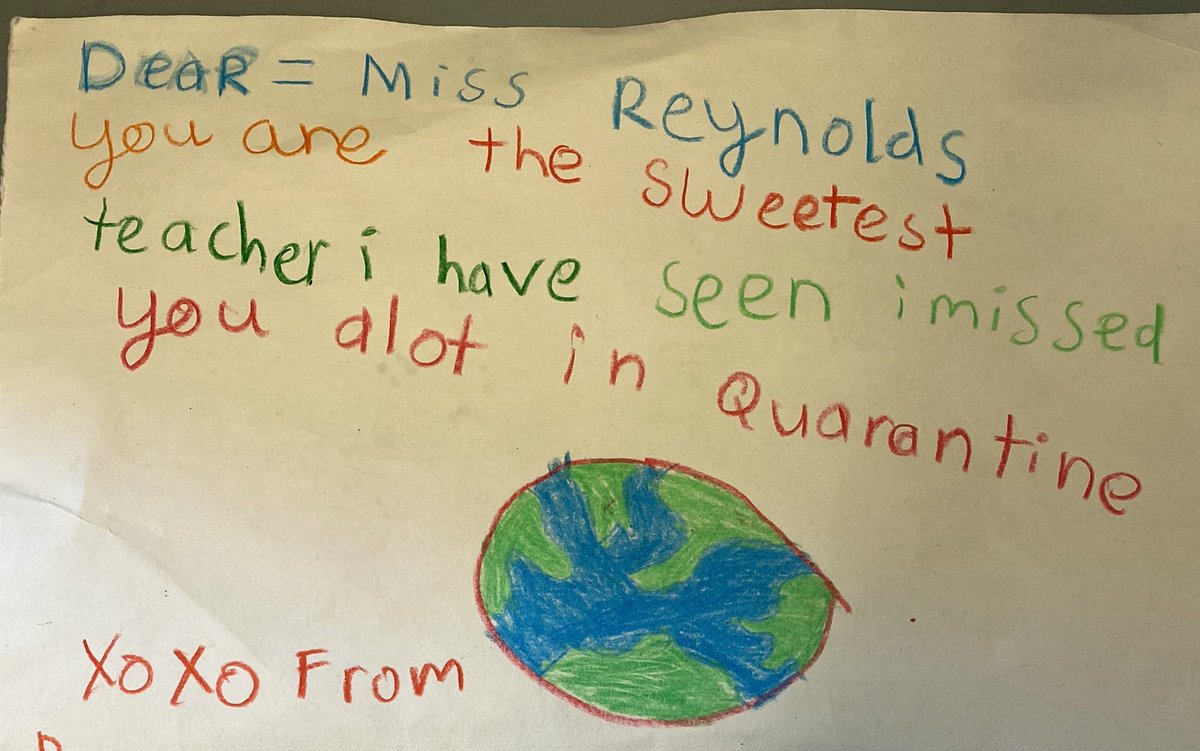 Dear = Miss Reynolds
you are the sweetest
teacher i have seen i missed
you alot in Quarantine
XoXo From